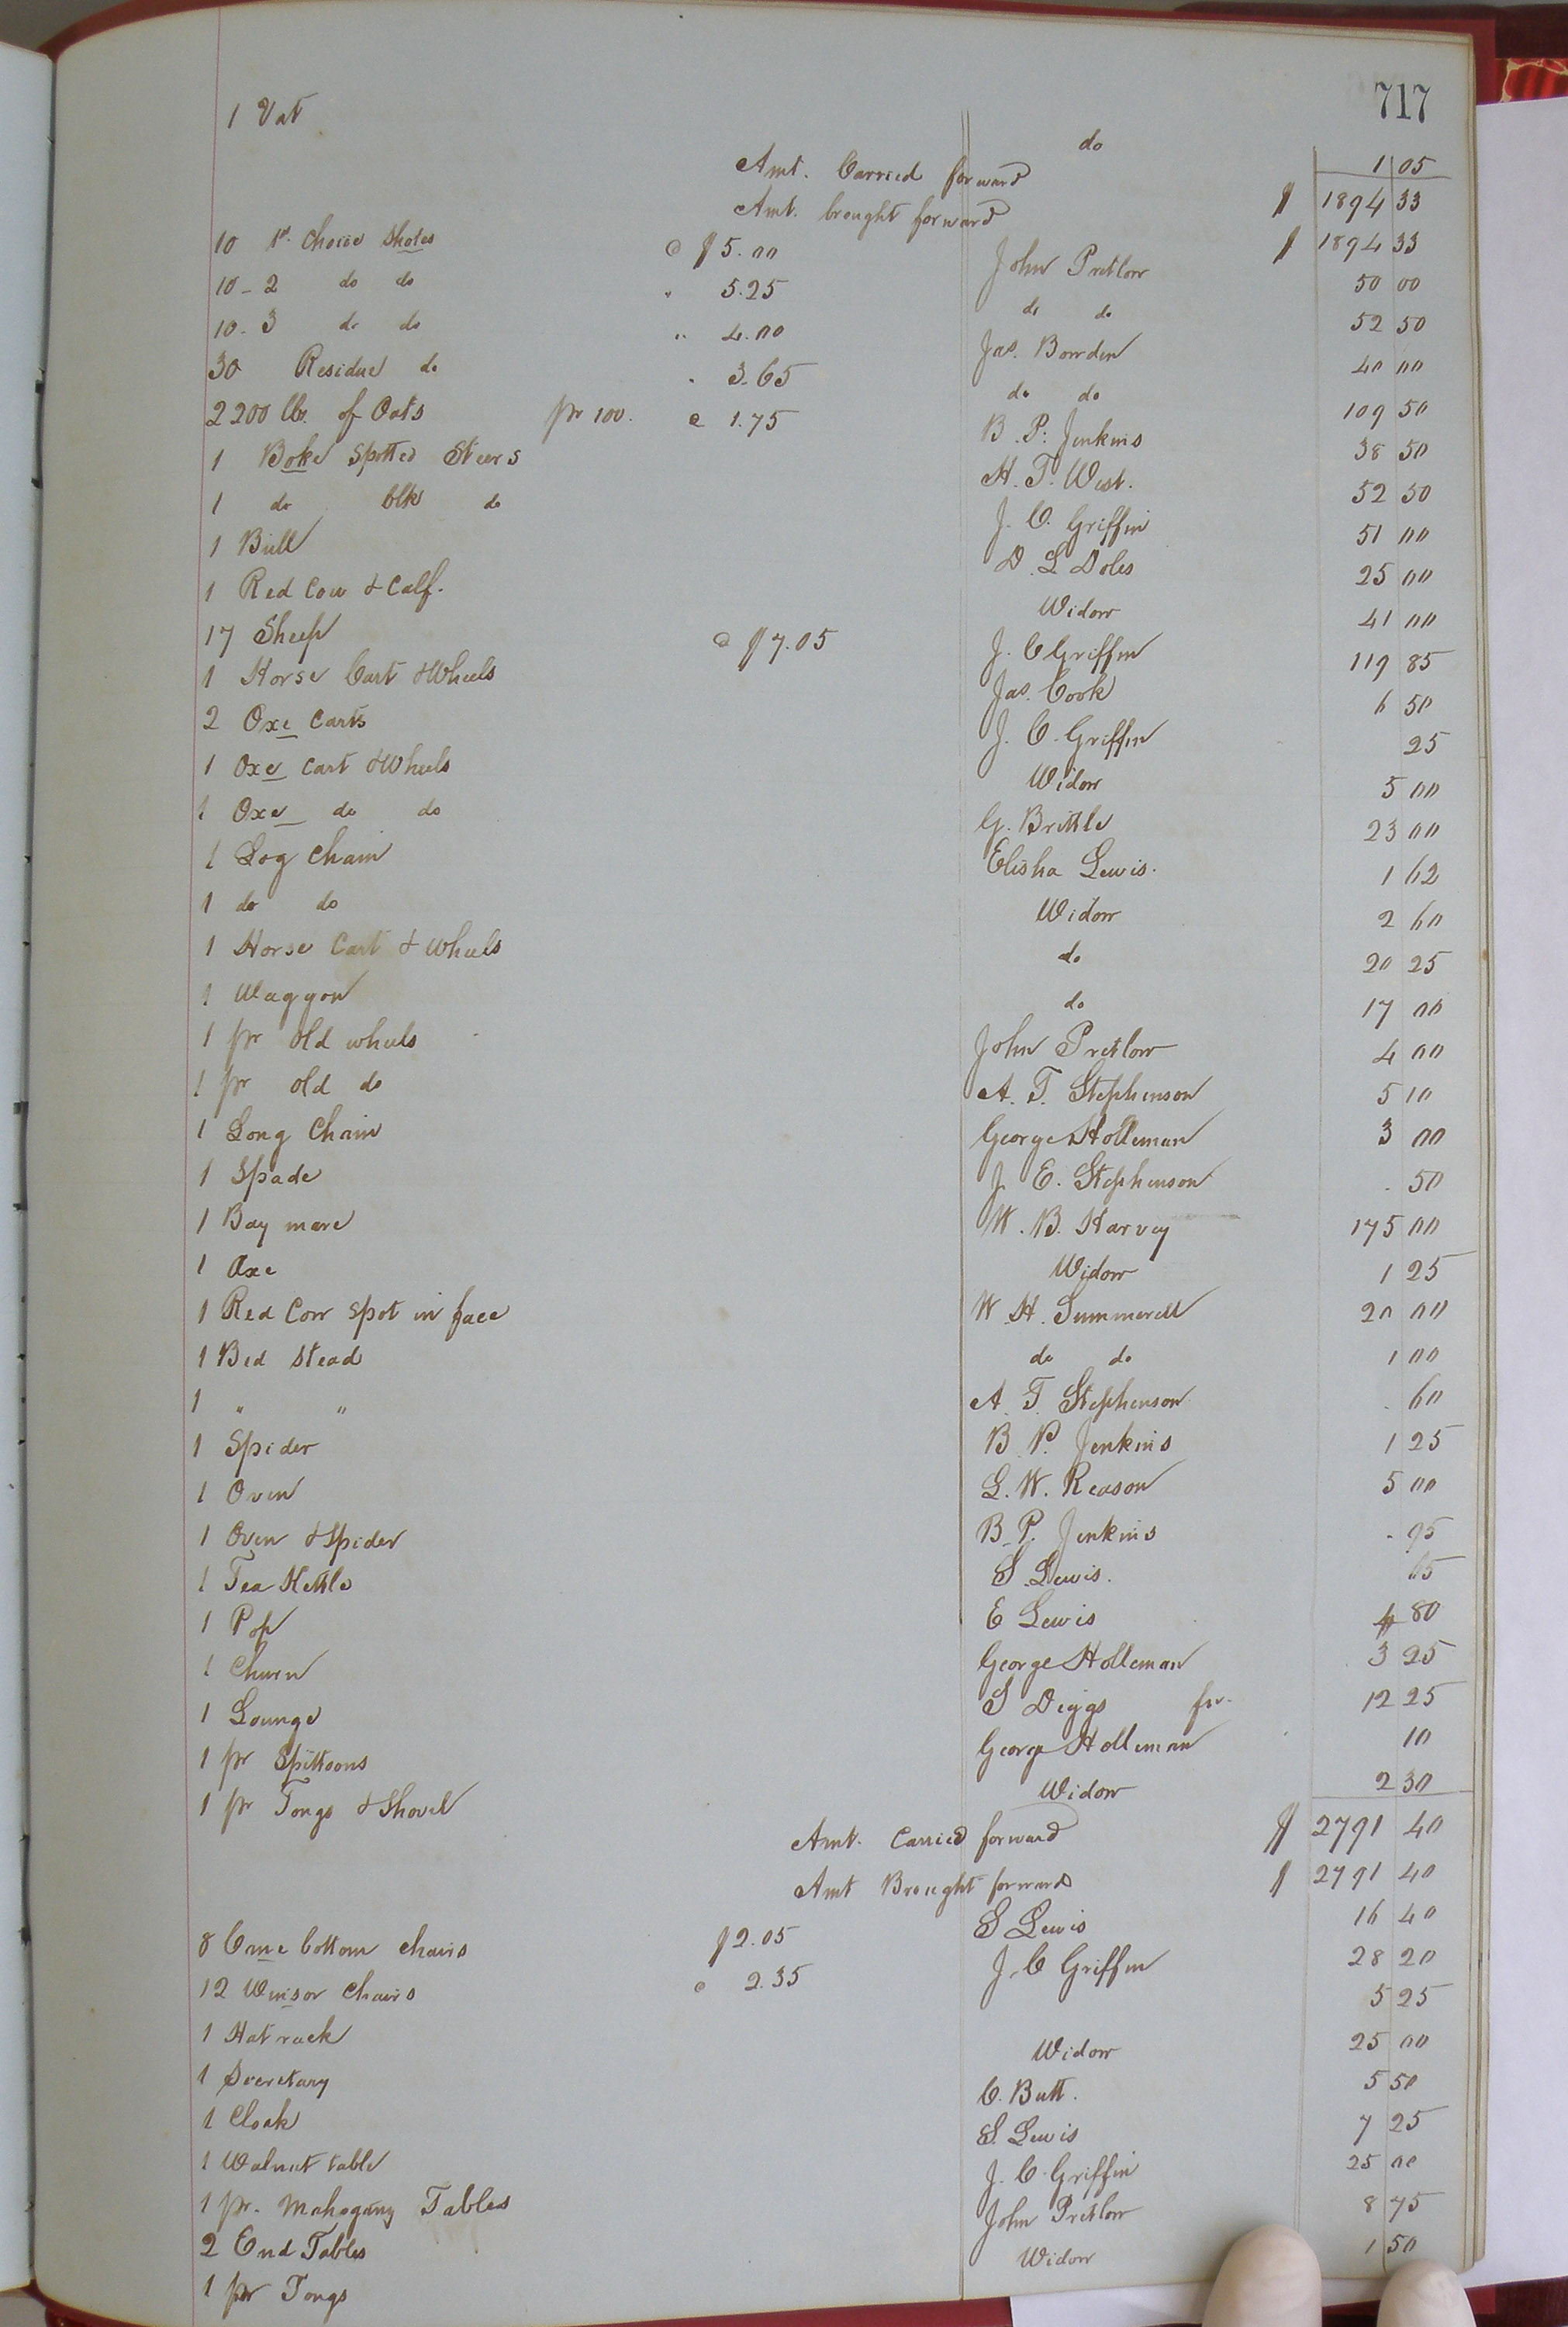 717
1 Vat do 1 05
Amt. Carried forward $ 1894 33
Amt. brought forward $ 1894 33
10 1st choice shotes @ $5.00 John Pretlow 50 00
10 - 2 do do " 5.25 do do 52 50
10 - 3 do do " 4.00 Jas. Bowden 40 00
30 Residue do " 3.65 do do 109 50
2200 lbs. of Oats pr 100. @ 1.75 B. P. Jenkins 38 50
1 Boke Spotted Steers H. T. West. 52 50
1 do blk do J. C. Griffin 51 00
1 Bull D. L Doles 25 00
1 Red Cow & Calf. Widow 41 00
17 Sheep @ $7.05 J. C Griffin 119 85
1 Horse Cart & Wheels Jas. Cook 6 50
2 Oxe Carts J. C. Griffin 25
1 Oxe Cart & Wheels Widow 5 00
1 Oxe do do G. Brittle 23 00
1 Log Chain Elisha Lewis. 1 62
1 do do Widow 2 60
1 Horse Cart & wheels do 20 25
1 Waggon do 17 00
1 pr old wheels John Pretlow 4 00
1 pr old do A. T. Stephenson 5 10
1 Long Chain George Holleman 3 00
1 Spade J. E. Stephenson . 50
1 Bay mare W. B. Harvey 175 00
1 Axe Widow 1 25
1 Red Cow spot in face W. H. Summerell 20 00
1 Bed stead do do 1 00
1 " " A. T. Stephenson . 60
1 Spider B P. Jenkins 1 25
1 Oven L. W. Reason 5 00
1 Oven & Spider B. P. Jenkins . 95
1 Tea Kettle S. Lewis. 65
1 Pop E Lewis 4 80
1 Churn George Holleman 3 25
1 Lounge S Diggs for 12 25
1 pr Spittoons George Holleman 10
1 pr Tongs & Shovel Widow 2 30
Amt. Carried forward $ 2791 40
Amt Brought forward $ 2791 40
8 Cane bottom chairs $2.05 S Lewis 16 40
12 Winsor Chairs @ 2.35 J. C Griffin 28 20
1 Hat rack 5 25
1 Secretary Widow 25 00
1 Cloak C. Butt. 5 50
1 Walnut table S. Lewis 7 25
1 pr. Mahogany Tables J. C. Griffin 25 00
2 End Tables John Pretlow 8 75
1 pr Tongs Widow 1 50